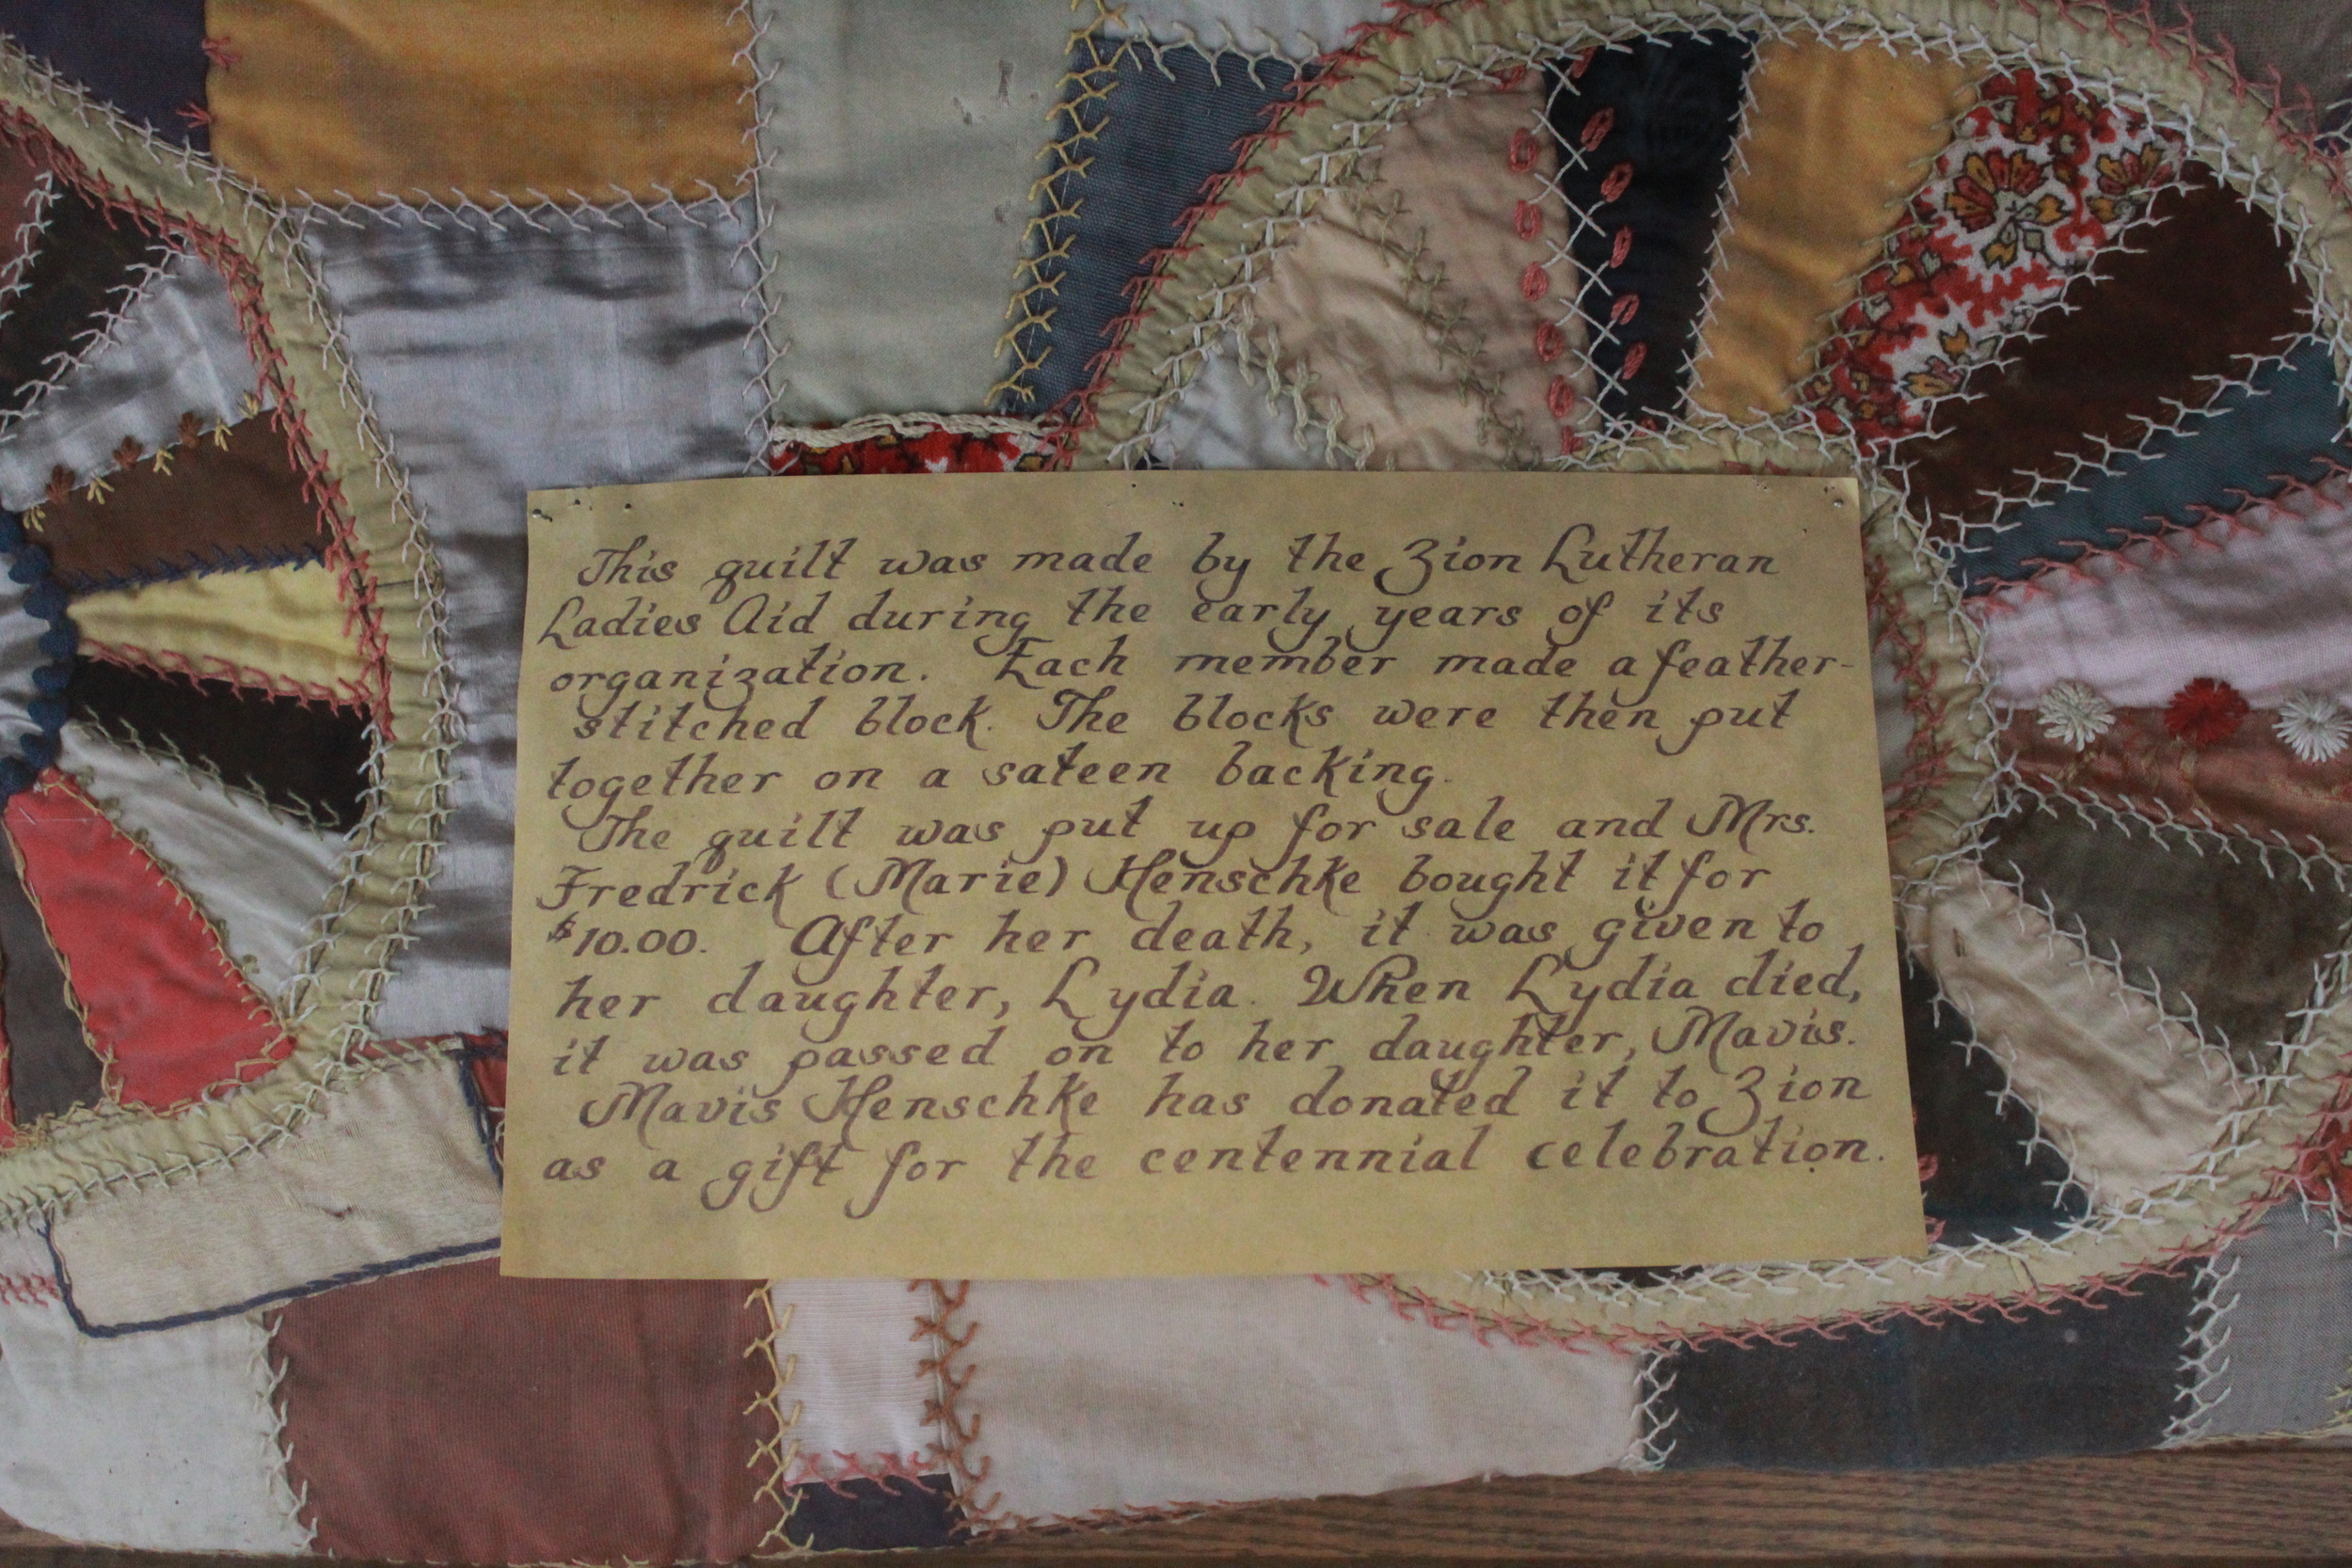 This quilt was made by the Zion Lutheran
Ladies Aid during the early years of its
organization. Each member made a feather-
stitched block. The blocks were then put
together on a sateen backing.
The quilt was put up for sale and Mrs.
Fredrick (Marie) Henschke bought it for
$10.00. After her death, it was given to
her daughter, Lydia. When Lydia died,
it was passed on to her daughter, Mavis.
Mavis Henschke has donated it to Zion
as a gift for the centennial celebration.